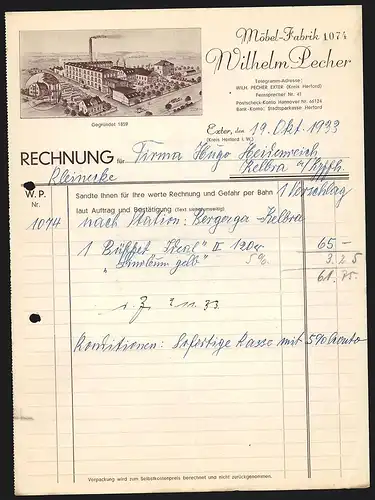 Möbel-Fabrik 1074
Wilhelm Pecher
Telegramm-Adresse:
WILH. PECHER EXTER (Kreis Herford)
Fernsprecher Nr. 41
Postscheck-Konto Hannover Nr. 66124
Bank-Konto: Stadtsparkasse Herford
Gegründet 1859
Exter, den 19. Okt. 1933
(Kreis Herford i. W.)
RECHNUNG für Firma Hugo Heidenreich
Kelbra a/Kyffh.
Kleinecke
W. P.
Nr.
Sandte Ihnen für Ihre werte Rechnung und Gefahr per Bahn 1 Vorschlag
laut Auftrag und Bestätigung (Text siehe umseitig).
1074 nach Station: Berga-Kelbra
1 Büffet "Ideal" II 120 cm 65 —
gelb" 5% 3.25
61.75
11.33
Konditionen: Sofortige Kasse mit 5% Skonto
Verpackung wird zum Selbstkostenpreis berechnet und nicht zurückgenommen.